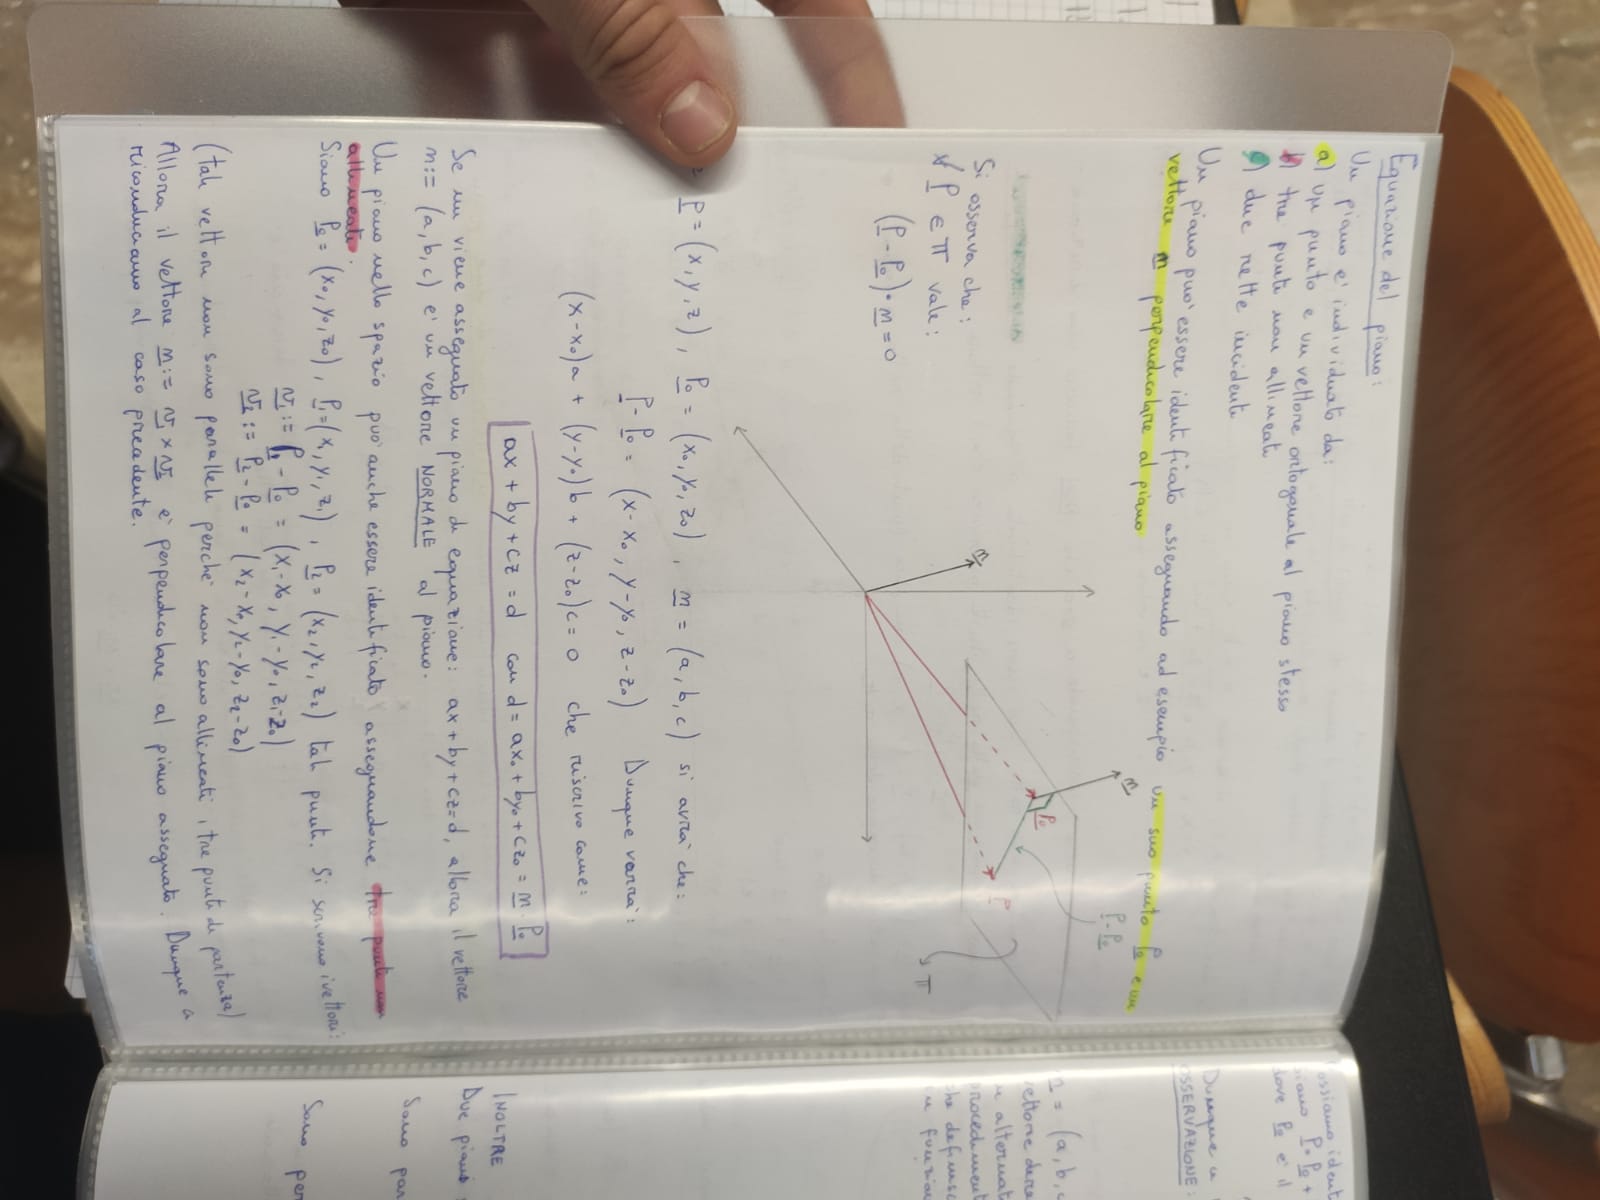 Equazione del piano:
Un piano e' individuato da:
a) un punto e un vettore ortogonale al piano stesso
b) tre punti non allineati
c) due rette incidenti
Un piano puo' essere identificato assegnando ad esempio un suo punto P0 e un
vettore n perpendicolare al piano
n
n
P0
P-P0
P
π
Si osserva che:
∀ P ∈ π vale:
(P - P0) • n = 0
P = (x, y, z), P0 = (x0, y0, z0), n = (a, b, c) si avrà che:
P - P0 = (x - x0, y - y0, z - z0) Dunque varrà:
(x - x0)a + (y - y0)b + (z - z0)c = 0 che riscrivo come:
ax + by + cz = d con d = ax0 + by0 + cz0 = n · P0
Se mi viene assegnato un piano di equazione: ax + by + cz = d, allora il vettore
n := (a, b, c) e' un vettore NORMALE al piano.
Un piano nello spazio puo' anche essere identificato assegnandone tre punti non
allineati.
Siano P0 = (x0, y0, z0), P1 = (x1, y1, z1), P2 = (x2, y2, z2) tali punti. Si scrivono i vettori:
v1 := P1 - P0 = (x1 - x0, y1 - y0, z1 - z0)
v2 := P2 - P0 = (x2 - x0, y2 - y0, z2 - z0)
(tali vettori non sono paralleli perchè non sono allineati i tre punti di partenza)
Allora il vettore n := v1 × v2 e' perpendicolare al piano assegnato. Dunque ci
riconduciamo al caso precedente.
Dunque
OSSERVAZIONE:
= (a, b, c
INOLTRE
Due piani
Sono par
Sono per